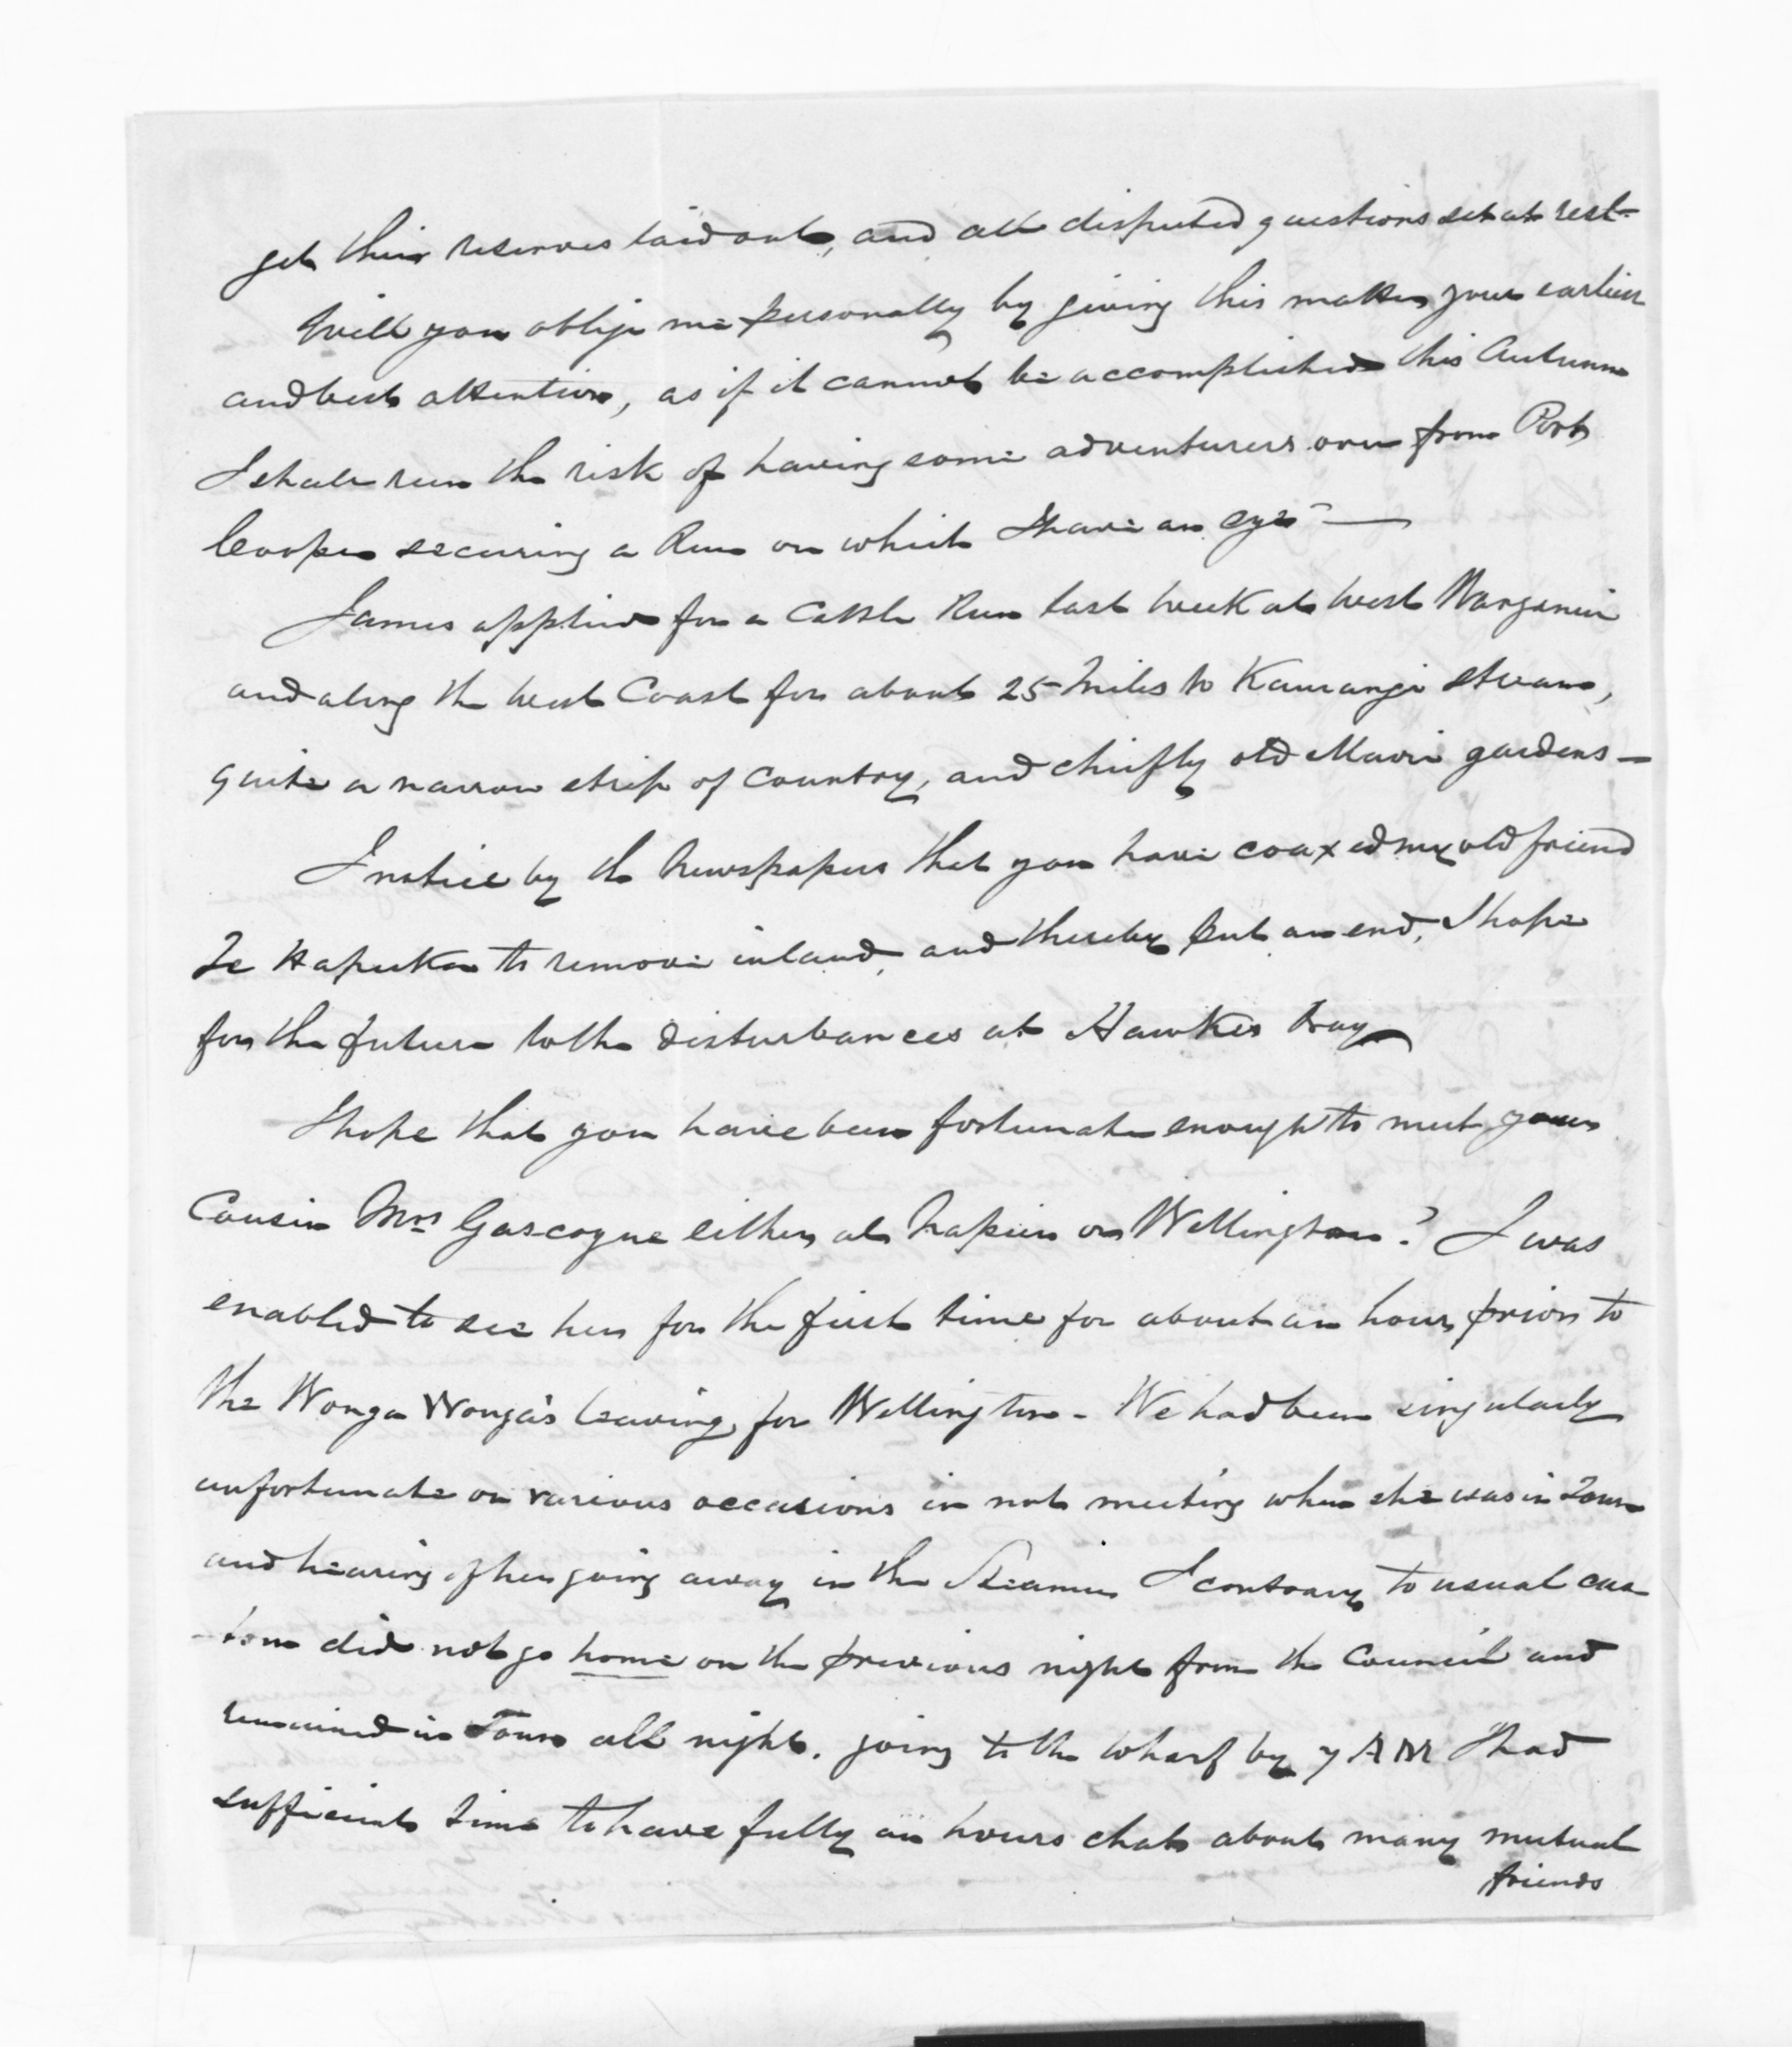 get their reserves laid out, and all disputed questions set at rest-
Will you oblige me personally by giving this matter your earliest
and best attention, as if it cannot be accomplished this Autumn
I shall run the risk of having some adventurers over from Port
Cooper securing a Run on which I have an eye —
James applied for a Cattle Run last week at West Wanganui
and along the West Coast for about 25 Miles to Kaurangi stream,
quite a narrow strip of Country, and chiefly old Maori gardens —
I notice by the Newspapers that you have coaxed my old friend
Te Hapuku to remove inland, and thereby put an end, I hope
for the future to the disturbances at Hawkes Bay
I hope that you have been fortunate enough to meet your
Cousin Mrs Gascoyne either at Napier or Wellington? I was
enabled to see her for the first time for about an hour prior to
the Wonga Wonga's leaving for Wellington - We had been singularly
unfortunate on various occasions in not meeting when she was in Town
and hearing of her going away in the Steamer I contrary to usual cus
-tom did not go home on the previous night from the Council and
remained in Town all night. going to the wharf by 7 AM I had
sufficient time to have fully an hours chat about many mutual
friends